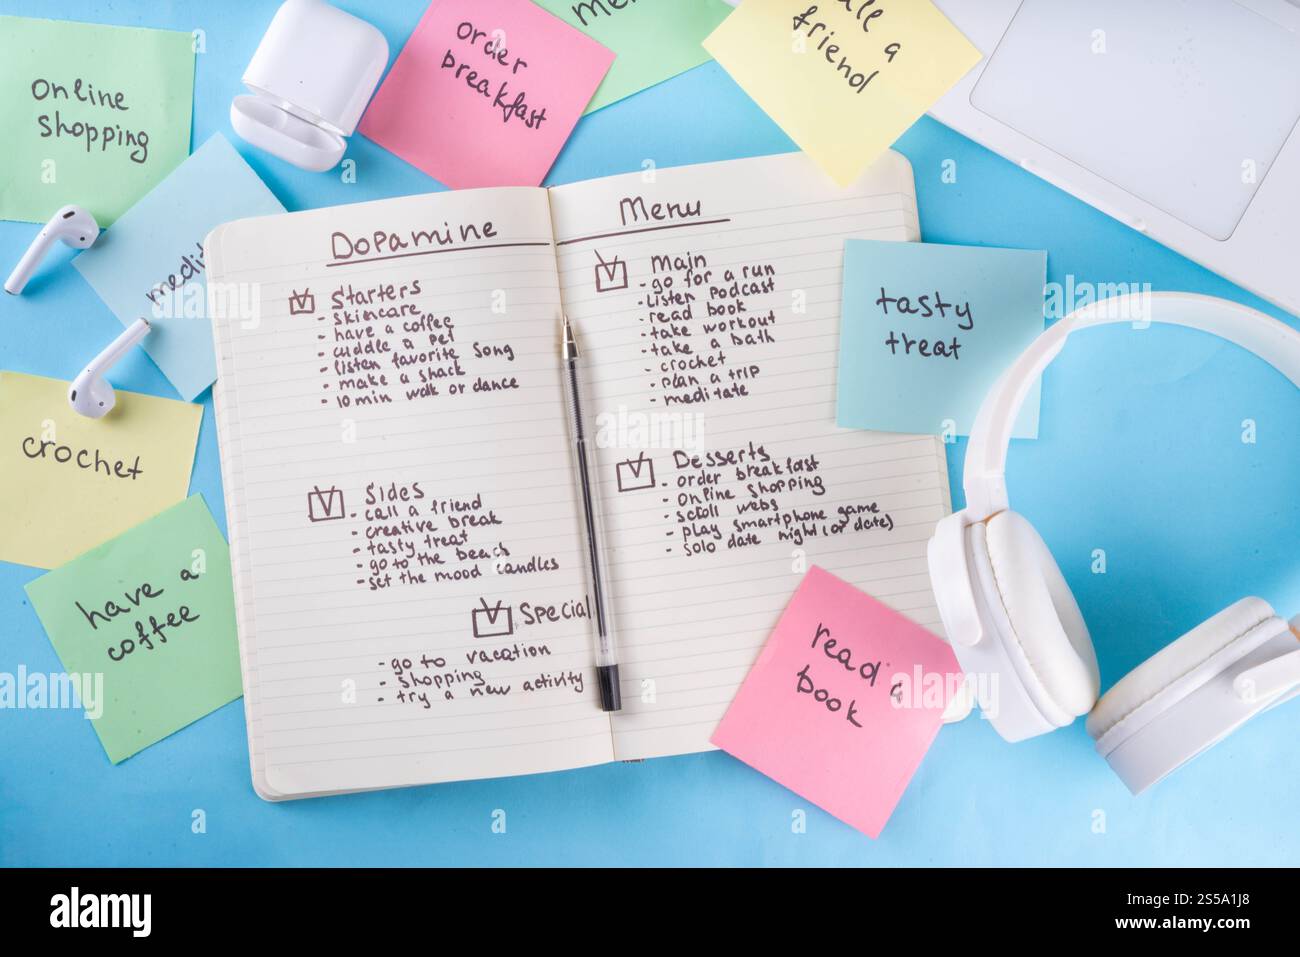 online
shopping
order
breakfast
me
call a
friend
medit
crochet
have a
coffee
Dopamine
Starters
- skincare
- have a coffee
- cuddle a pet
- listen favorite song
- make a snack
- 10 min walk or dance
Sides
- call a friend
- creative break
- tasty treat
- go to the beach
- set the mood candles
Special
- go to vacation
- shopping
- try a new activity
Menu
Main
- go for a run
- Listen Podcast
- read book
- take workout
- take a bath
- crochet
- plan a trip
- meditate
Desserts
- order breakfast
- online shopping
- scroll webs
- play smartphone game
- solo date night (or date)
tasty
treat
read a
book
alamy
Image ID: 2S5A1J8
www.alamy.com